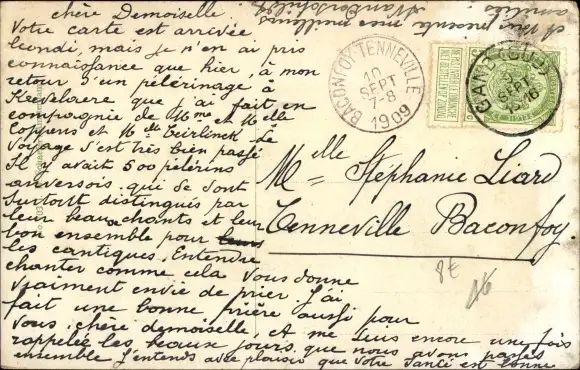 chère Demoiselle
Votre carte est arrivée
lundi, mais je n'en ai pris
connaissance que hier, à mon
retour d'un pélérinage à
Kevelaere que j'ai fait en
compagnie de Mme et Mlle
Coppens et Mlle Teirlinck. Le
voyage s'est très bien passé
Il y avait 500 pélérins
anversois qui se sont
surtout distingués par
leur beaux chants et leur
bon ensemble pour
les cantiques. Entendre
chanter comme cela vous donne
vraiment envie de prier. J'ai
fait une bonne prière aussi pour
vous, chère demoiselle, et me suis encore une fois
rappelée les beaux jours que nous avons passés
ensemble. J'entends avec plaisir que votre santé est bonne
et vous présente mes meilleures
amitiés
BACONFOY-TENNEVILLE
10
SEPT
7-8
1909
GAND (SUD)
SEPT
Mlle Stéphanie Liard
Tenneville Baconfoy
8€